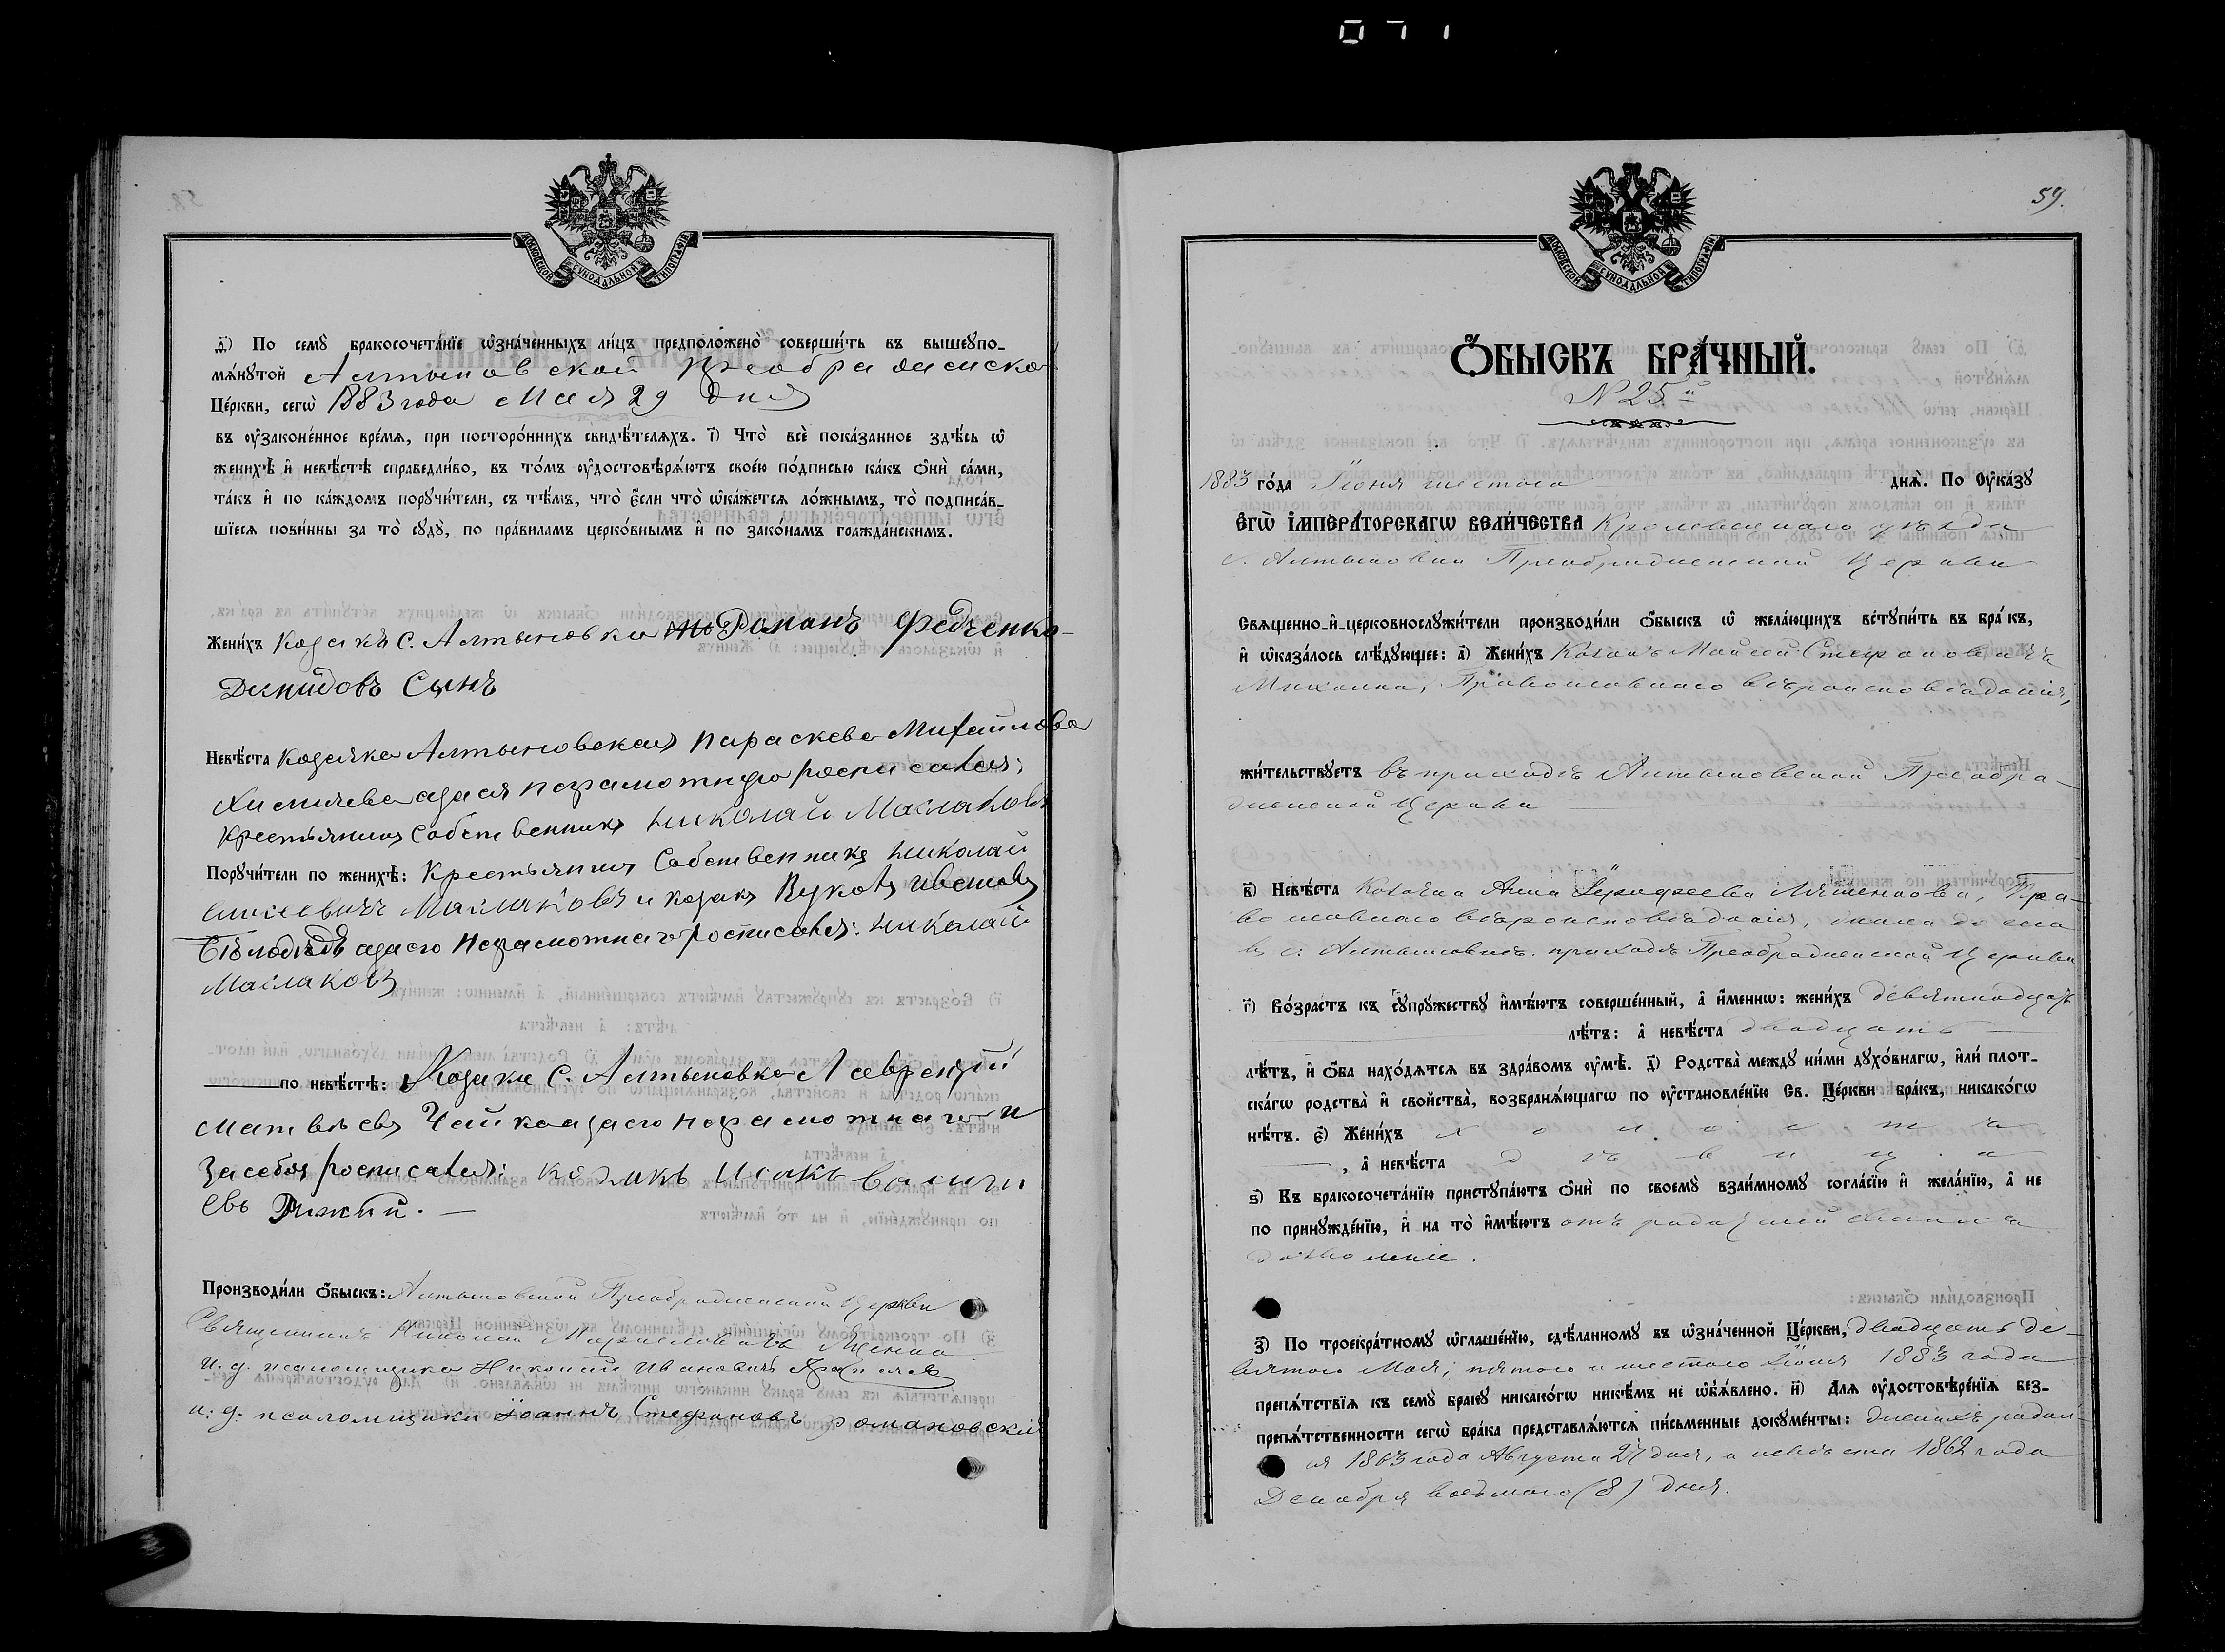 071
МОСКОВСКОЙ СѴНОДАЛЬНОЙ ТИПОГРАФІИ
ѳ҃) По семꙋ̀ бракосочета́нїе ѡ҆зна́ченныхъ ли́цъ предположено̀ соверши́ть въ вышеꙋпо-
мѧ́нꙋтой Алтыновской Преображенской
Це́ркви, сегѡ̀ 1883 года Мая 29 дня
въ ᲂу҆зако́не́нное вре́мѧ, при посторо́ннихъ свидѣ́телѧхъ. і҃) Что̀ всѐ пока́занное здѣ́сь ѡ҆
женихѣ̀ и҆ невѣ́стѣ справедли́во, въ то́мъ ᲂу҆достовѣрѧ́ютъ свое́ю по́дписью ка́къ ѻ҆нѝ са́ми,
та́къ и҆ по ка́ждомъ порꙋчи́тели, съ тѣ́мъ, что̀ є҆́сли что̀ ѡ҆ка́жетсѧ ло́жнымъ, то̀ подписа́в-
шїесѧ пови́нны за то̀ сꙋдꙋ̀, по пра́виламъ церко́внымъ и҆ по зако́намъ гражда́нскимъ.
Жени́хъ Козакъ С. Алтыновки Романъ Федченко
Демидовъ Сынъ
Невѣ́ста Козачка Алтыновская Параскева Михайлова
азая неграмотную росписался:
Крестьянинъ Собственникъ Николай Маслаковъ
Порꙋчи́тели по женихѣ̀: Крестьянинъ Собственникъ Николай
Маслаковъ и козакъ
азаго неграмотнаго росписался: Николай
Маслаковъ
по невѣ́стѣ: Козаки С. Алтыновки Лаврентій
Матвѣевъ Чайка азаго неграмотнаго и
за себя росписался: козакъ Исакъ
евъ Рижий. —
Производи́ли ѻ҆́быскъ: Алтыновской Преображенской Церкви
Священникъ Николай
и. д. псаломщика Николай Ивановичъ
и. д. псаломщика Іоаннъ Стефановъ Романовскій
59.
МОСКОВСКОЙ СѴНОДАЛЬНОЙ ТИПОГРАФІИ
Ѻ҆́БЫСКЪ БРА́ЧНЫЙ.
№ 25й
1883 го́да Іюня шестого днѧ̀. По Оу҆ка́зꙋ
Є҆гѡ̀ І҆мпера́торскагѡ Вели́чества Кролевецкаго уѣзда
с. Алтыновки Преображенской Церкви
Свѧще́нно-и҆-церковнослꙋжи́тели производи́ли ѻ҆́быскъ ѡ҆ жела́ющихъ встꙋпи́ть въ бра́къ,
и҆ ѡ҆каза́лось слѣ́дꙋющее: а҃) Жени́хъ Козакъ Моисей Стефановичъ
Михалка, Православнаго вѣроисповѣданія,
жи́тельствꙋетъ въ приходѣ Алтыновской Преобра-
женской Церкви
в҃) Невѣ́ста Козачка Анна Ляшенкова, Пра-
вославнаго вѣроисповѣданія, жила до сего
въ с: Алтыновкѣ приходѣ Преображенской Церкви
г҃) Во́зрастъ къ сꙋпрꙋ́жествꙋ и҆мѣ́ютъ соверше́нный, а҆ и҆́меннѡ: жени́хъ девятнадцать
лѣ́тъ: а҆ невѣ́ста двадцать
лѣ́тъ, и҆ ѻ҆́ба нахо́дѧтсѧ въ здра́вомъ ᲂу҆мѣ̀. д҃) Родства̀ междꙋ ни́ми дꙋхо́внагѡ, и҆лѝ плот-
ска́гѡ родства̀ и҆ свойства̀, возбранѧ́ющагѡ по ᲂу҆становле́нїю Св. Це́ркви бра́къ, никако́гѡ
нѣ́тъ. є҃) Жени́хъ х о л о с т ъ
, а҆ невѣ́ста д ѣ в и ц а
ѕ҃) Къ бракосочета́нїю пристꙋпа́ютъ ѻ҆нѝ по своемꙋ̀ взаи́мномꙋ согла́сїю и҆ жела́нїю, а҆ не
по принꙋжде́нїю, и҆ на то̀ и҆мѣ́ютъ отъ родителей своихъ
дозволеніе.
з҃) По троекра́тномꙋ ѡ҆глаше́нїю, сдѣ́ланномꙋ въ ѡ҆зна́ченной Це́ркви, двадцать де-
вятого Мая; пятого и шестого Іюня 1883 года
препѧ́тствїѧ къ семꙋ̀ бра́кꙋ никако́гѡ никѣ́мъ не ѡ҆б̾ѧ́влено. и҃) Длѧ ᲂу҆достовѣре́нїѧ без-
препѧ́тственности сегѡ̀ бра́ка представлѧ́ютсѧ пи́сьменные докꙋме́нты: женихъ родил-
ся 1863 года Августа 27 дня, а невѣста 1862 года
Декабря восьмого (8) дня.